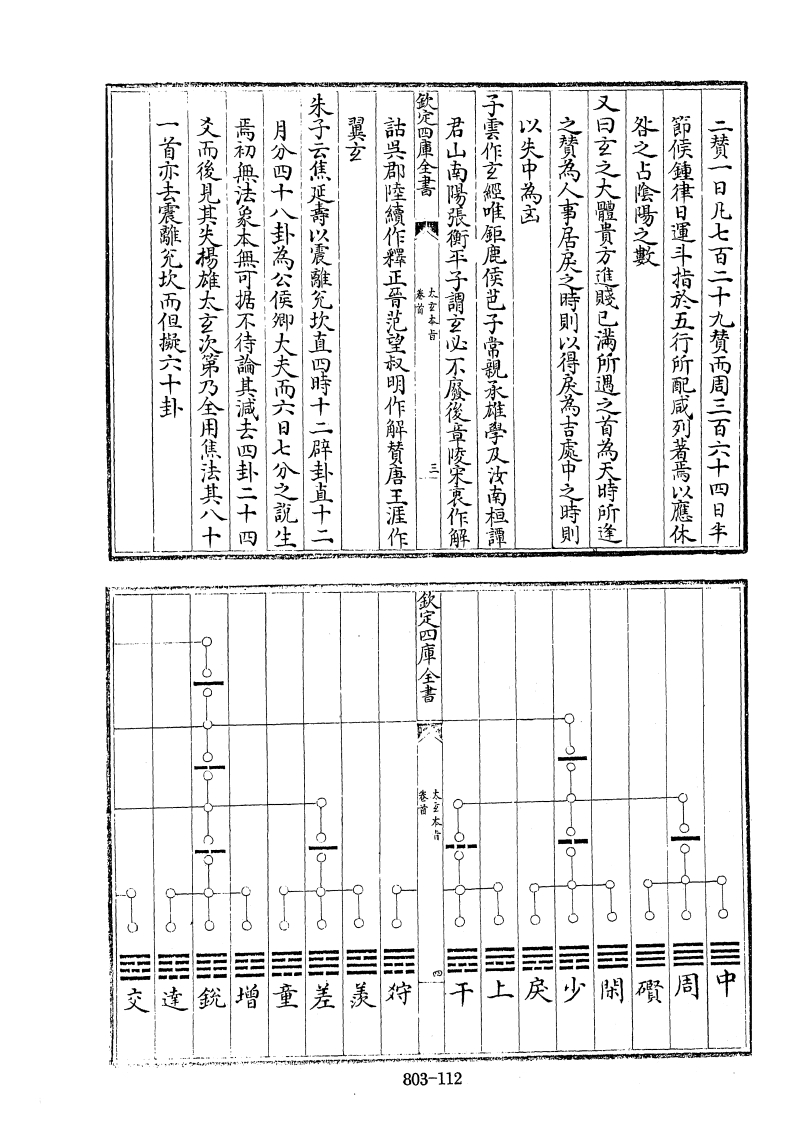 二賛一日凡七百二十九賛而周三百六十四日半
節候鍾律日運斗指於五行所配咸列著焉以應休
咎之占陰陽之數
又曰玄之大體貴方進賤已滿所遇之首為天時所逢
之賛為人事居戾之時則以得戾為吉處中之時則
以失中為凶
子雲作玄經唯鉅鹿侯芭子常親承雄學及汝南桓譚
君山南陽張衡平子謂玄必不廢後章陵宋衷作解
欽定四庫全書
太玄本旨
卷首
三
詁吳郡陸績作釋正晉范望叔明作解賛唐王涯作
翼玄
朱子云焦延壽以震離兊坎直四時十二辟卦直十二
月分四十八卦為公侯卿大夫而六日七分之說生
焉初無法象本無可据不待論其減去四卦二十四
爻而後見其失揚雄太玄次第乃全用焦法其八十
一首亦去震離兊坎而但擬六十卦
中
周
礥
閑
少
戾
上
干
欽定四庫全書
太玄本旨
卷首
四
狩
羨
差
童
增
銳
達
交
803-112